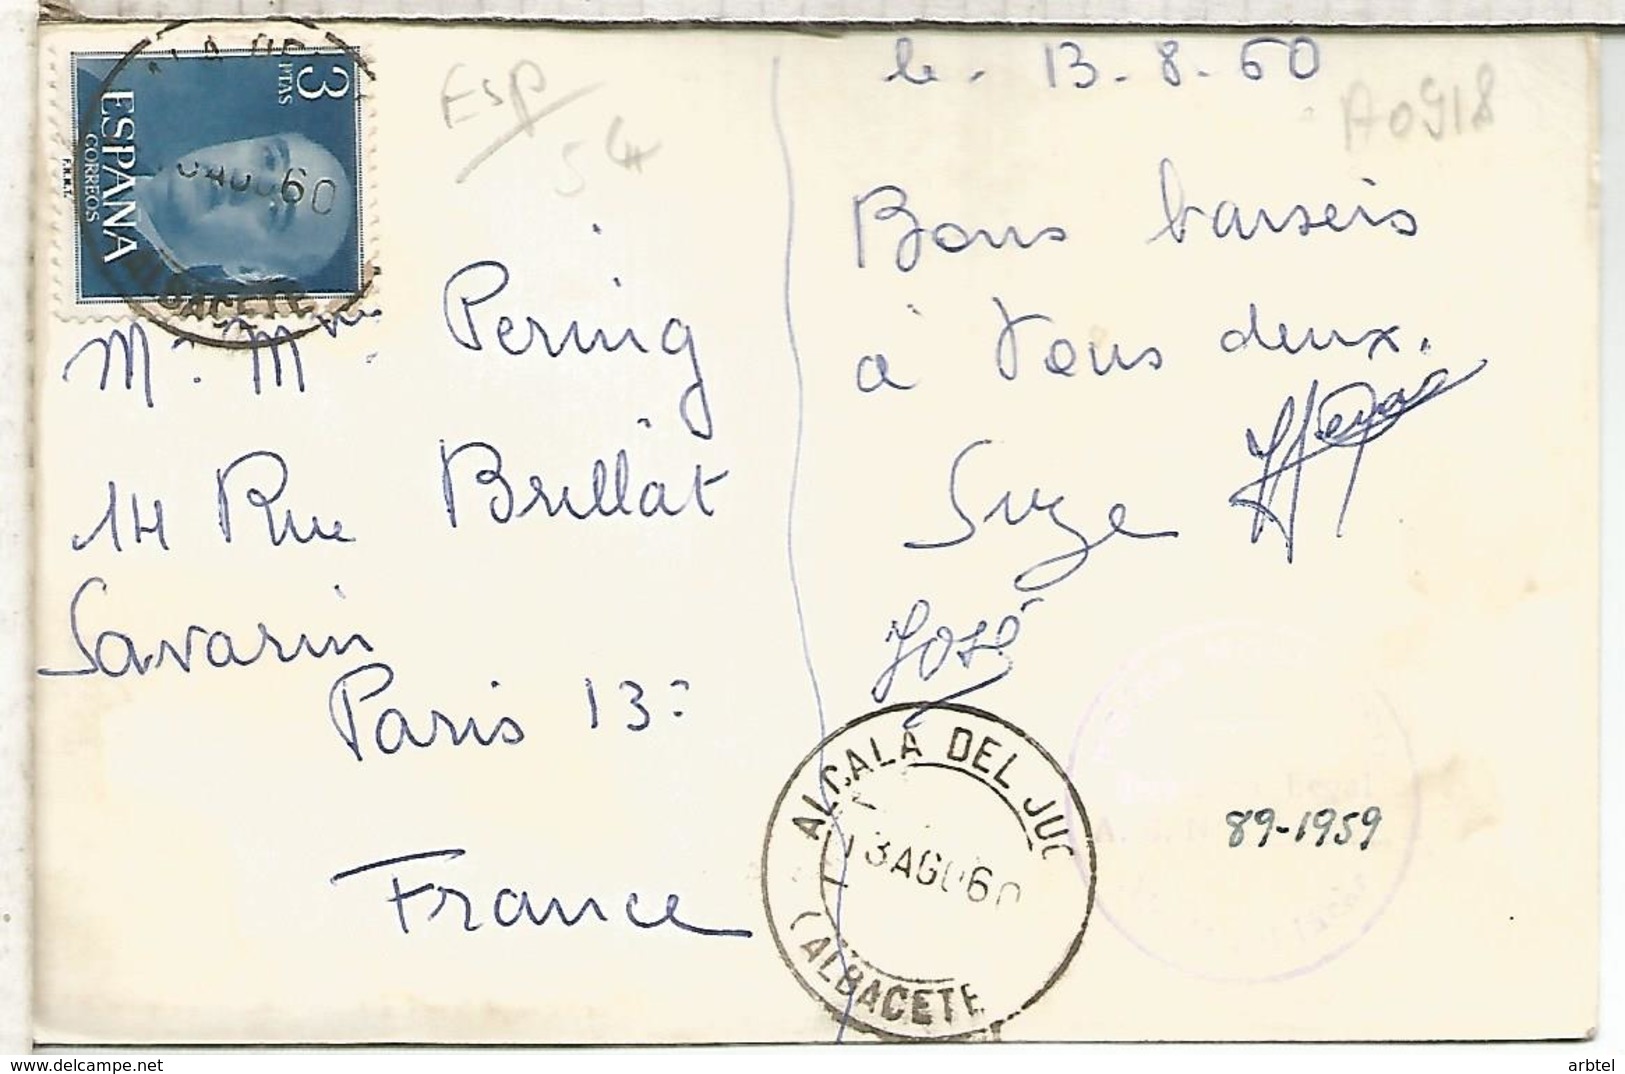 3 PTAS
ESPAÑA
CORREOS
F.N.M.T.
AGO 60
ALBACETE
ESP
54
A0918
le. 13-8-60
Bons baisers
à Vous deux.
Suze
José
Mr. Mme Pering
14 Rue Brillat
Savarin
Paris 13e
France
ALCALÁ DEL JUC
13 AGO 60
(ALBACETE
89-1959
arbtel